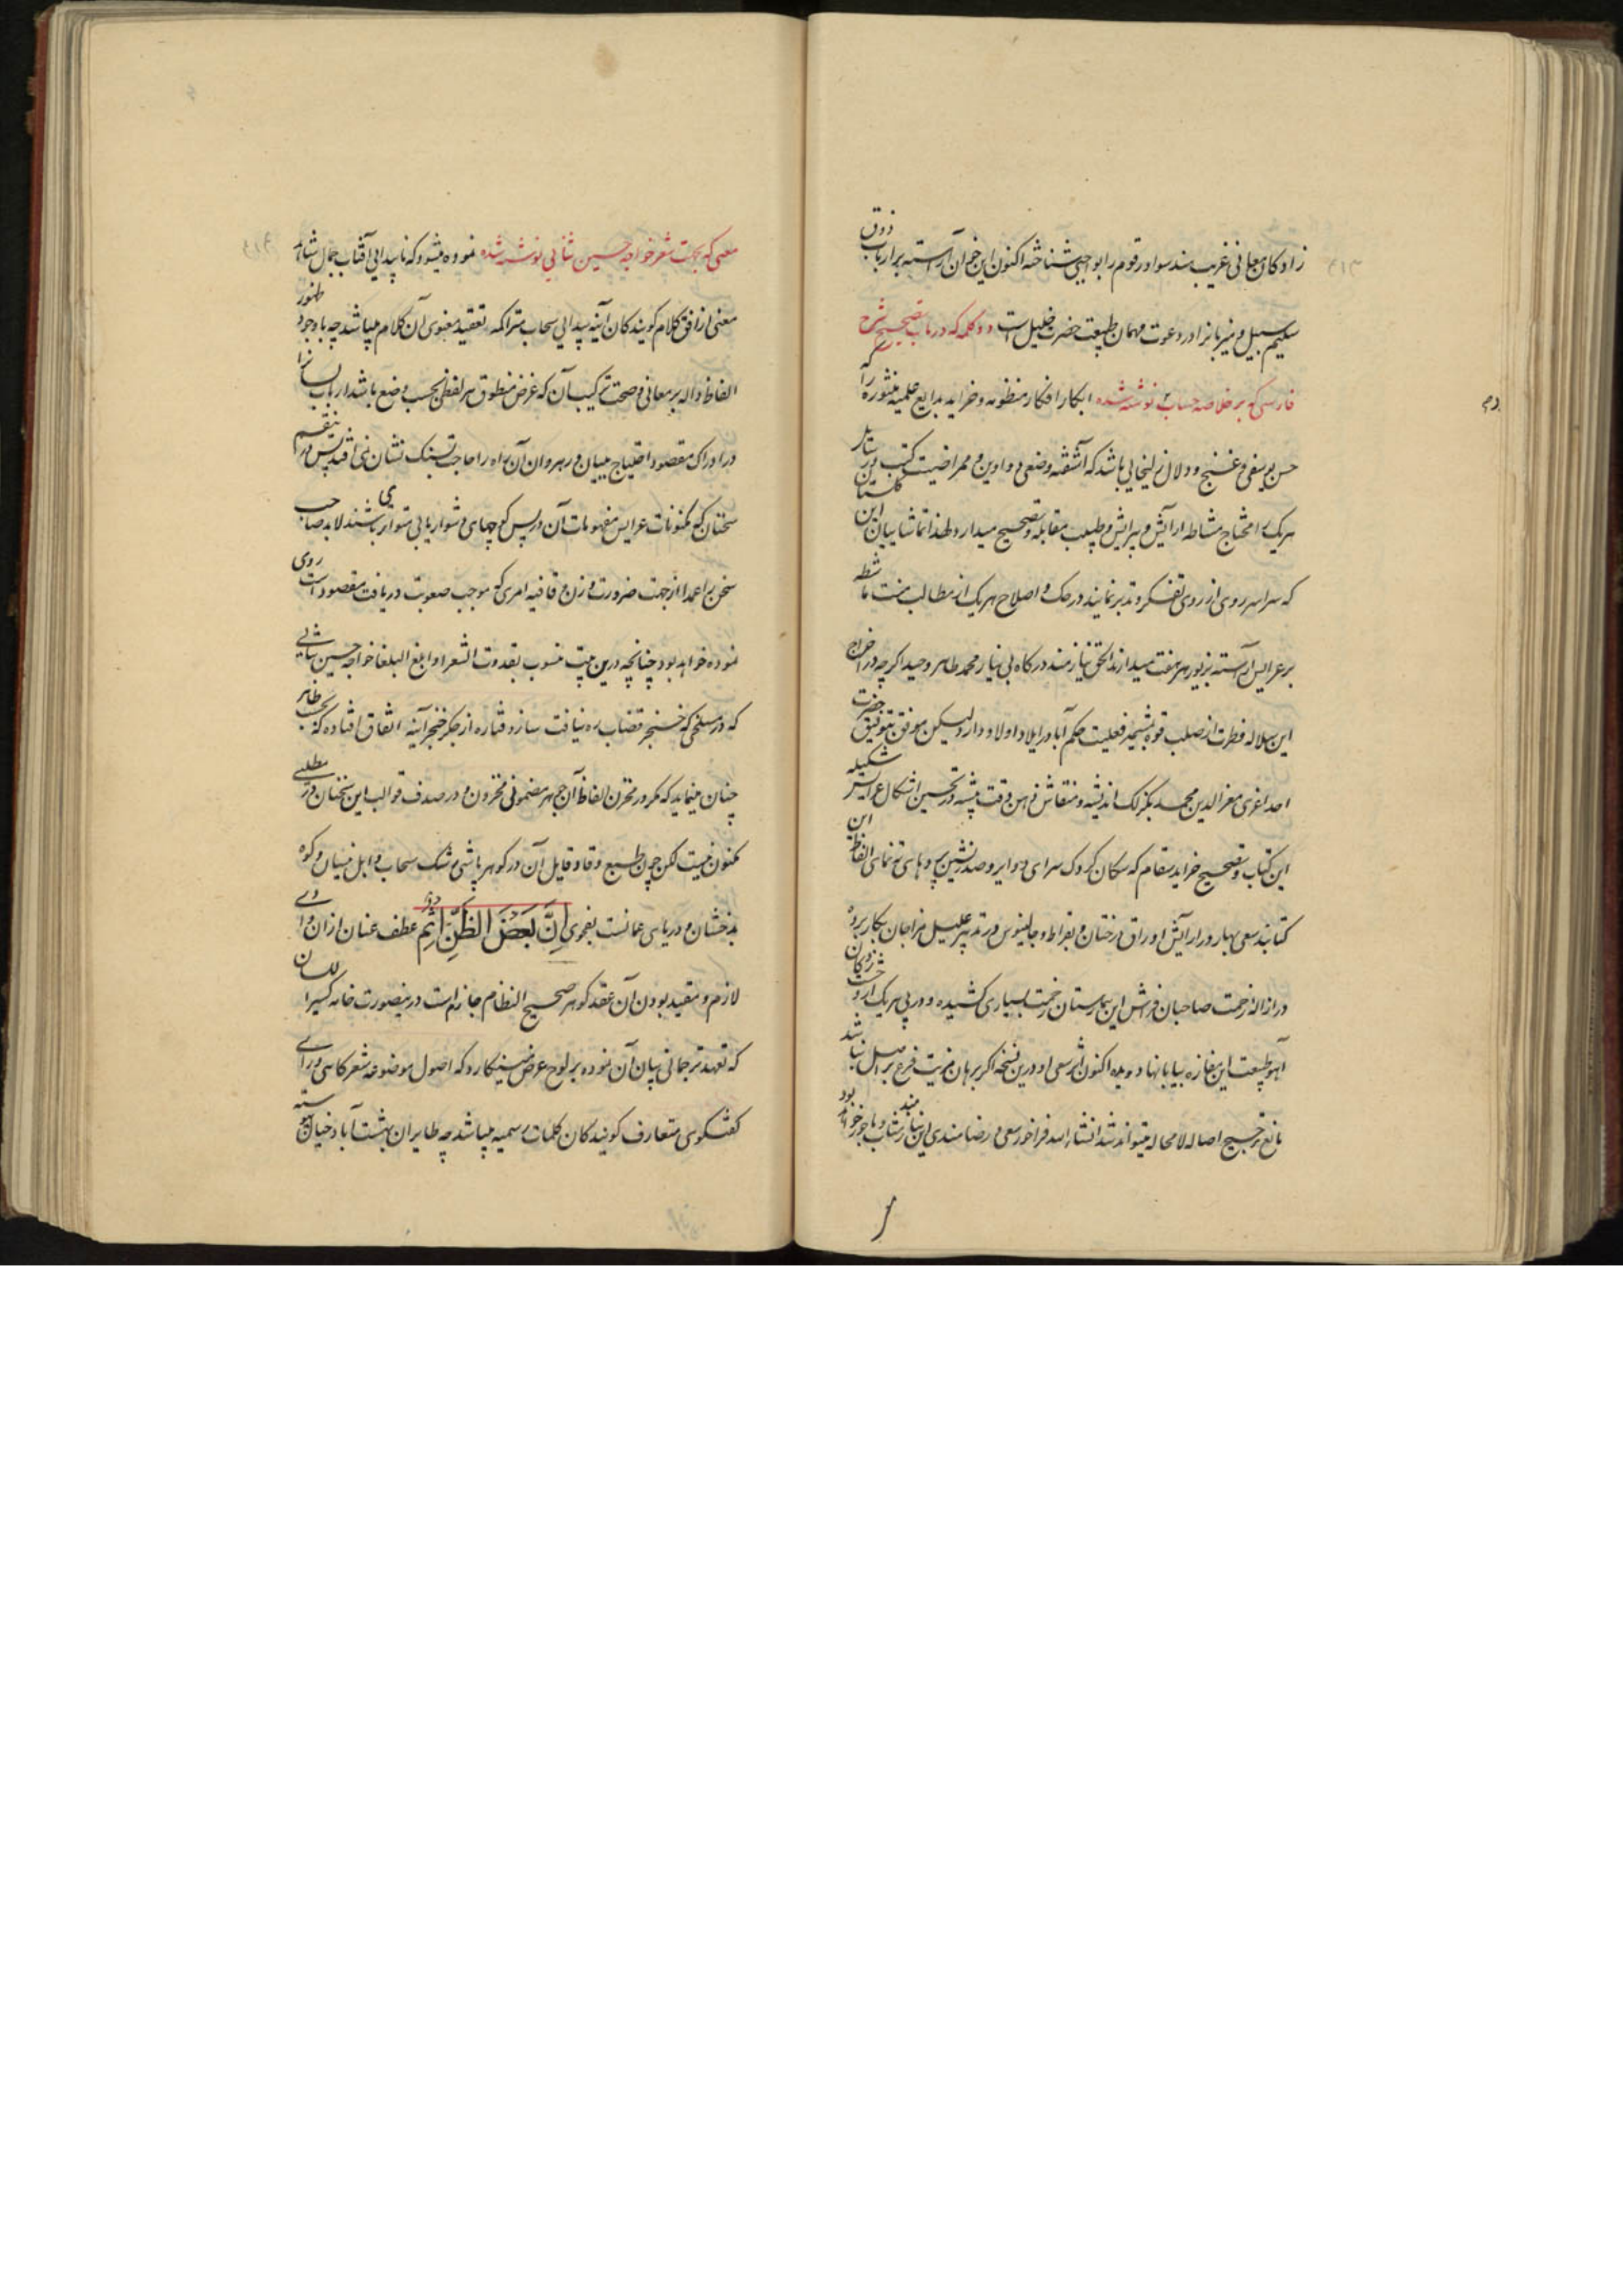 زادکان معانی غریب هند سواد رقوم را بواجبی شناخته اکنون این خوان آراسته بر ارباب ذوق
سلیم سبیل و میزبانرا در دعوت مهمان طبیعت حضرت خلیل است دو کلمه که در باب تصحیح شرح
فارسی که بر خلاصه حساب نوشته شده ابکار افکار منظومه و خراید بدایع علمیه منثوره را که
حسن یوسفی و غنج و دلال زلیخایی باشد که آشفته وضعی دواوین و ممراضیت کتب
هر یک را محتاج مشاطه آرایش و پیرایش و طبیب مقابله و تصحیح میدارد لهذا تماشاییان این گلستان
که سراسر روی از روی تفکر و تدبر نمایند در حک و اصلاح هر یک از مطالب منت ماشطه
بر عرایس آراسته بزیور هر هفت میدارند الحق نیازمند درگاه بی نیاز محمد طاهر وحید اگرچه در اخراج
این سلاله فطرت از صلب قوه بمشیمه فعلیت حکم آبا در ایلاد اولاد دارد لیکن موفق بتوفیق حضرت
احد لغیری معزالدین محمد بگزلک اندیشه و منقاش ذهن دقت پیشه در تحسین اشکال عرایس شکیله
این کتاب و تصحیح خراید سقام که سکان کروک سرای دوایر و صدرنشین پردهای ته نمای الفاظ این
کتابند سعی بهار در آرایش اوراق درختان و بقراط و جالینوس در تدبیر علیل مزاجان بکار برده
در ازاله زحمت صاحبان فراش این بیمارستان زحمت بسیاری کشیده و در پی هر یک از
آهو طبیعت این مفازه بیابانها دویده اکنون اثر سعی او درین نسخه اگر برهان مزیت فرع بر اصل نباشد
مانع ترجیح اصاله لامحاله میتواند شد انشاء الله فراخور سعی و رضامندی این نیازمند مثاب و ماجور خواهد بود
معنی که بجهت شعر خواجه حسین ثنایی نوشته شده نموده میشود که ناپیدایی آفتاب جمال شاهد
معنی از افق کلام گویندگان آینه پیدایی سحاب متراکمه تعقید معنوی آن کلام میباشد چه با وجود ظهور
الفاظ داله بر معانی و صحت ترکیب آن که غرض منطوق هر لفظی بحسب وضع باشد ارباب لسانرا
در ادراک مقصود احتیاج ببیان و رهروان آن راه را حاجت بسنگ نشان نمی افتد پس در تنقیح
سخنان که مکنونات عرایس مفهومات آن در پس کوچهای دشواریابی متواری باشند لابد صاحب
سخن را عمدا از جهت ضرورت وزن و قافیه امری که موجب صعوبت دریافت مقصود است روی
نموده خواهد بود چنانچه درین بیت منسوب بقدوت الشعرا و ابلغ البلغا خواجه حسین ثنایی
که در مسلخی که خنجر قصاب ره نیافت سازد قناره از جگر خنجر آینه اتفاق افتاده که بحسب ظاهر
چنان مینماید که مگر در مخزن الفاظ آن جوهر مضمونی مخزون و در صدف قوالب این سخنان در مطلبی
مکنون نیست لکن چون طبع وقاد قایل آن در گوهرپاشی رشک سحاب و ابل نیسان و کوه
بدخشان و دریای عمانست بفحوای اِنَّ بَعضَ الظَّنِّ اِثم عطف عنان از آن وادی
لازم و مقید بودن آن عقد گوهر صحیح النظام جازم است درینصورت خامه کسیرا لسان
که تعهد ترجمانی بیان آن نموده بر لوح عرض مینگارد که اصول موضوعه شعرگاهی ورای
گفتگوی متعارف گویندگان کلمات رسمیه میباشد چه طایران بهشت آباد خیال